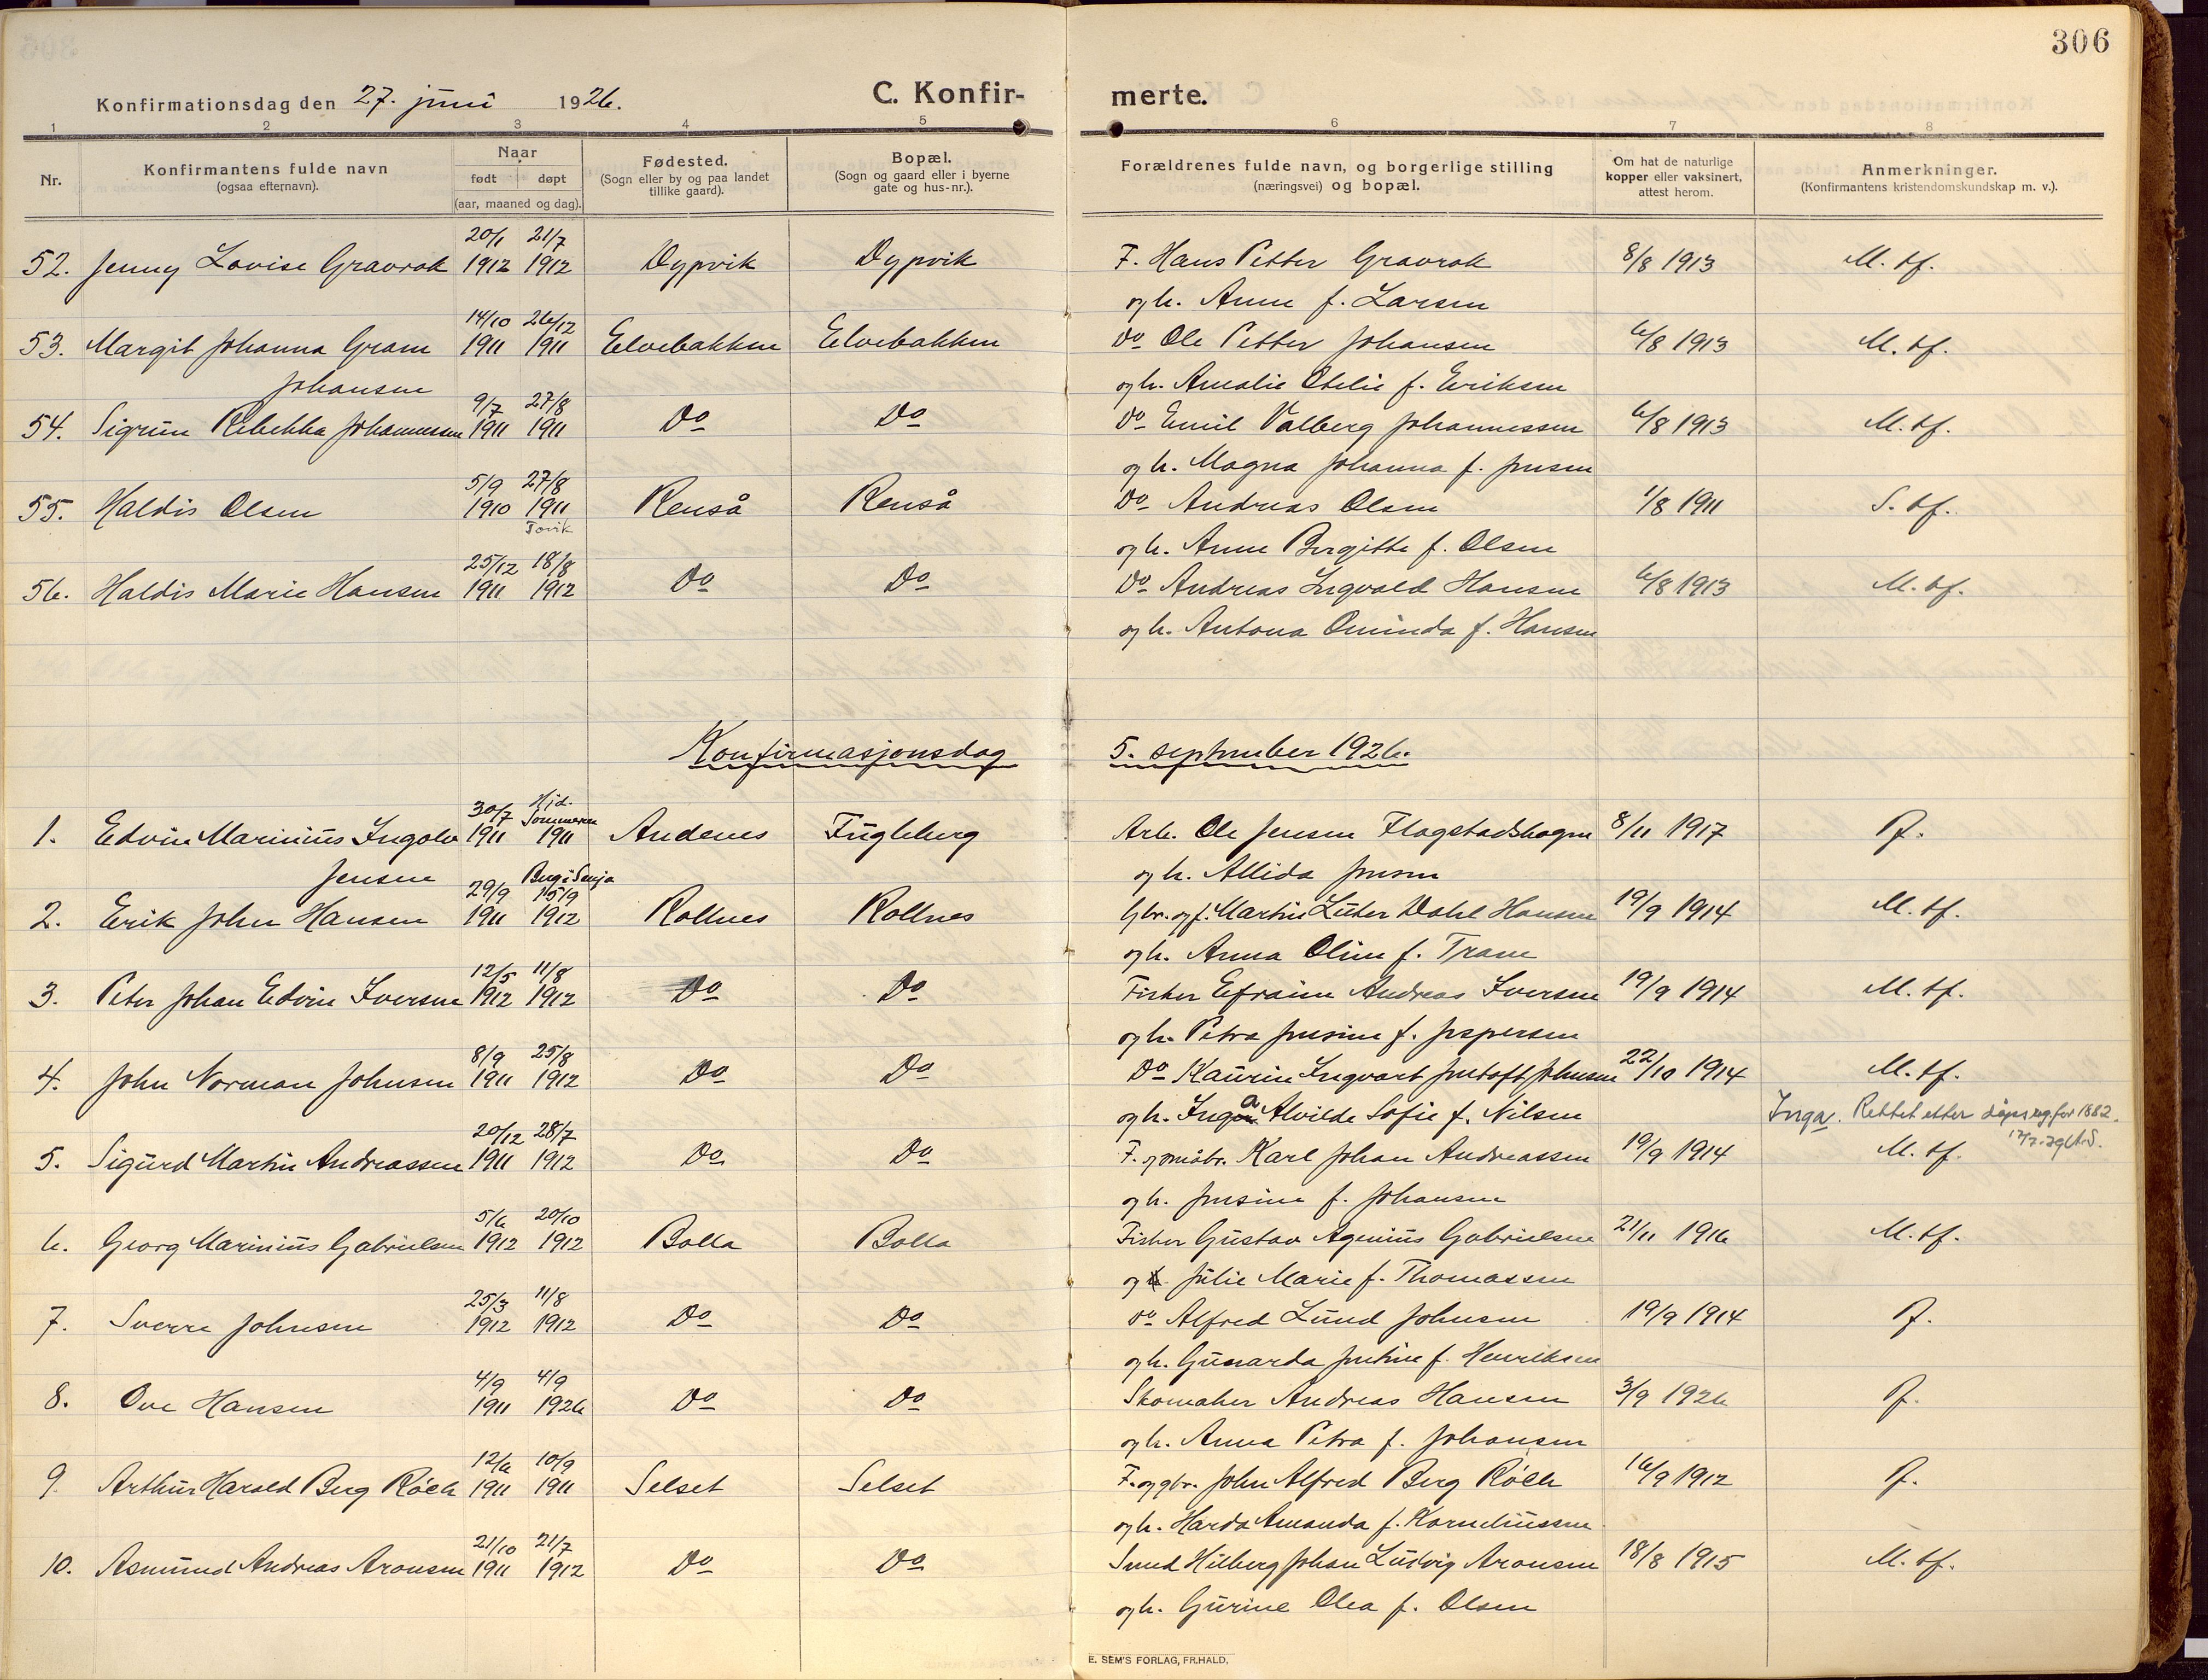 306
Konfirmationsdag den 27. juni 1926.
C. Konfirmerte.
1 2 3 4 5 6 7 8
Nr.
Konfirmantens fulde navn
(ogsaa efternavn).
Naar
født døpt
(aar, maaned og dag).
Fødested.
(Sogn eller by og paa landet
tillike gaard).
Bopæl.
(Sogn og gaard eller i byerne
gate og hus-nr.).
Forældrenes fulde navn, og borgerlige stilling
(næringsvei) og bopæl.
Om hat de naturlige
kopper eller vaksinert,
attest herom.
Anmerkninger.
(Konfirmantens kristendomskundskap m. v.).
20/1 21/7
52. Jenny Lovise Gravrok 1912 1912 Dypvik Dypvik F. Hans Petter Gravrok 8/8 1913 M. tf.
og h. Anne f. Larsen
14/10 26/12
53. Margit Johanna Gram 1911 1911 Elvebakken Elvebakken Do Ole Petter Johansen 6/8 1913 M. tf.
Johansen og h. Amalie Otelie f. Eriksen
9/7 27/8
54. Sigrun Rebekka Johannessen 1911 1911 Do Do Do Emil Valberg Johannessen 6/8 1913 M. tf.
og h. Magna Johanna f. Jensen
5/9 27/8
55. Haldis Olsen 1910 1911 Renså Renså Do Andreas Olsen 1/8 1911 S. tf.
Tovik
og h. Anne Birgitte f. Olsen
25/12 18/8
56. Haldis Marie Hansen 1911 1912 Do Do Do Andreas Ingvald Hansen 6/8 1913 M. tf.
og h. Antona Ominda f. Hansen
Konfirmasjonsdag 5. september 1926.
30/7 Hjd. Sommeren
1. Edvin Marinius Ingolv 1911 1911 Andenes Fugleberg Arb. Ole Jensen Flagstadshagen 8/11 1917 J.
Jensen Berg i Senja og h. Allida Jensen
29/9 15/9
2. Erik John Hansen 1911 1912 Rollnes Rollnes Gbr. og f. Martin Luter Dahl Hansen 19/9 1914 M. tf.
og h. Anna Oline f. Trane
12/5 11/8
3. Peter Johan Edvin Iversen 1912 1912 Do Do Fisker Efraim Andreas Iversen 19/9 1914 M. tf.
og h. Petra Jensine f. Jespersen
8/9 25/8
4. John Norman Johnsen 1911 1912 Do Do Do Kaurin Ingvart Jentoft Johnsen 22/10 1914 M. tf.
og h. Inga Alvilde Sofie f. Nilsen Inga. Rettet etter dåpsreg. for 1882.
20/12 28/7
5. Sigurd Martin Andreassen 1911 1912 Do Do F. og småbr. Karl Johan Andreassen 19/9 1914 M. tf.
og h. Jensine f. Johansen
5/6 20/10
6. Georg Marinius Gabrielsen 1912 1912 Bolla Bolla Fisker Gustav Agenius Gabrielsen 21/11 1916 M. tf.
og h. Julie Marie f. Thomassen
25/3 11/8
7. Sverre Johnsen 1912 1912 Do Do Do Alfred Lund Johnsen 19/9 1914 J.
og h. Gunarda Jentine f. Henriksen
4/9 4/9
8. Ove Hansen 1911 1926 Do Do Skomaker Andreas Hansen 3/9 1926 J.
og h. Anna Petra f. Johansen
12/6 10/9
9. Arthur Harald Berg Röch 1911 1911 Selset Selset F. og gbr. John Alfred Berg Röch 16/9 1912 J.
og h. Harda Amanda f. Korneliussen
21/10 21/7
10. Asmund Andreas Aronsen 1911 1912 Do Do Smed Hilberg Johan Ludvig Aronsen 18/8 1915 M. tf.
og h. Gurine Olea f. Olsen
E. SEM'S FORLAG, FR.HALD.